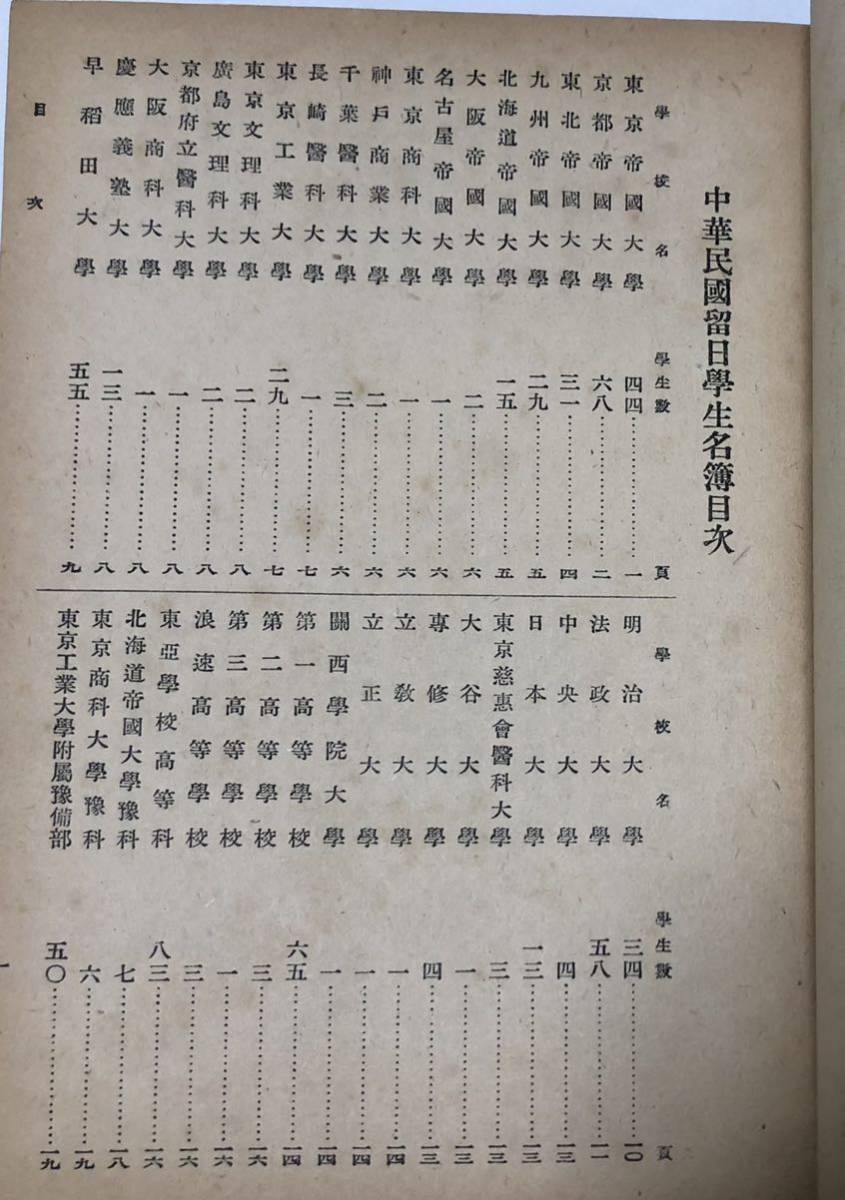 中華民國留日學生名簿目次
學校名 學生數 頁
東京帝國大學 四四……………一
京都帝國大學 六八……………二
東北帝國大學 三一……………四
九州帝國大學 二九……………五
北海道帝國大學 一五……………五
大阪帝國大學 二……………六
名古屋帝國大學 一……………六
東京商科大學 一……………六
神戶商業大學 二……………六
千葉醫科大學 三……………六
長崎醫科大學 一……………七
東京工業大學 二九……………七
東京文理科大學 二……………八
廣島文理科大學 二……………八
京都府立醫科大學 一……………八
大阪商科大學 一……………八
慶應義塾大學 一三……………八
早稻田大學 五五……………九
學校名 學生數 頁
明治大學 三四……………一〇
法政大學 五八……………一一
中央大學 四……………一三
日本大學 一三……………一三
東京慈惠會醫科大學 三……………一三
大谷大學 一……………一三
專修大學 四……………一三
立教大學 一……………一四
立正大學 一……………一四
關西學院大學 一……………一四
第一高等學校 六五……………一四
第二高等學校 三……………一六
第三高等學校 一……………一六
浪速高等學校 三……………一六
東亞學校高等科 八三……………一六
北海道帝國大學豫科 七……………一八
東京商科大學豫科 六……………一九
東京工業大學附屬豫備部 五〇……………一九
目次
一